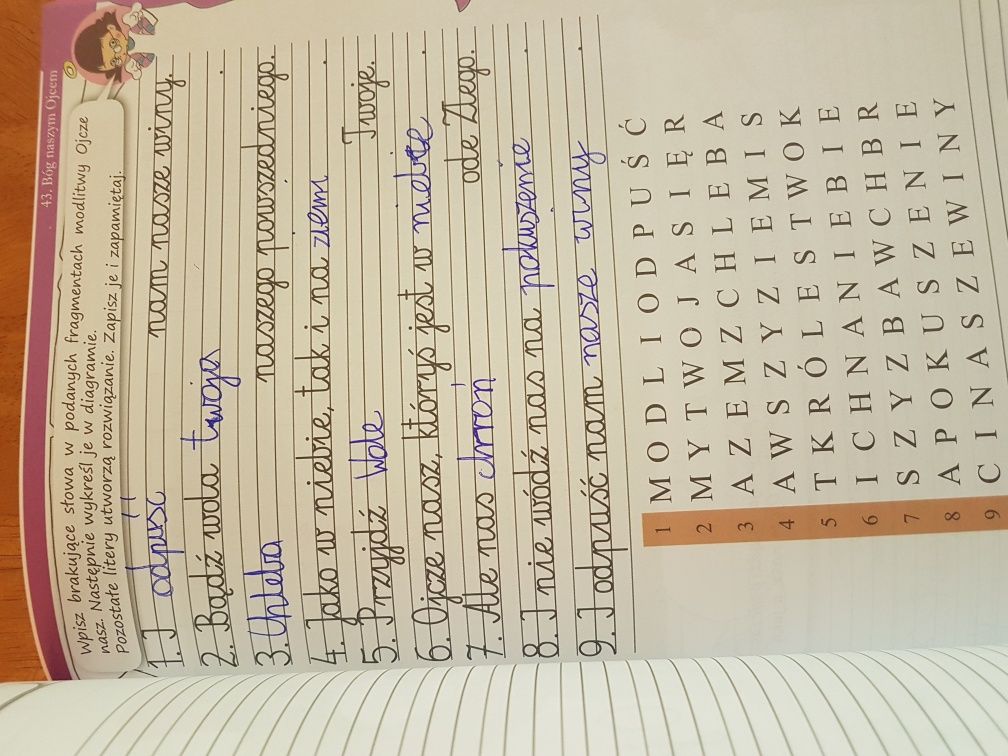 43. Bóg naszym Ojcem
Wpisz brakujące słowa w podanych fragmentach modlitwy Ojcze
nasz. Następnie wykreśl je w diagramie.
Pozostałe litery utworzą rozwiązanie. Zapisz je i zapamiętaj.
1. I odpuść nam nasze winy.
2. Bądź wola twoja .
3. Chleba naszego powszedniego.
4. Jako w niebie, tak i na ziem .
5. Przyjdź Wole Twoje.
6. Ojcze nasz, któryś jest w niebie .
7. Ale nas chroń ode Złego.
8. I nie wódź nas na pokuszenie .
9. I odpuść nam nasze winy .
1 M O D L I O D P U Ś Ć
2 M Y T W O J A S I Ę R
3 A Z E M Z C H L E B A
4 A W S Z Y Z I E M I S
5 T K R Ó L E S T W O K
6 I C H N A N I E B I E
7 S Z Y Z B A W C H B R
8 A P O K U S Z E N I E
9 C I N A S Z E W I N Y